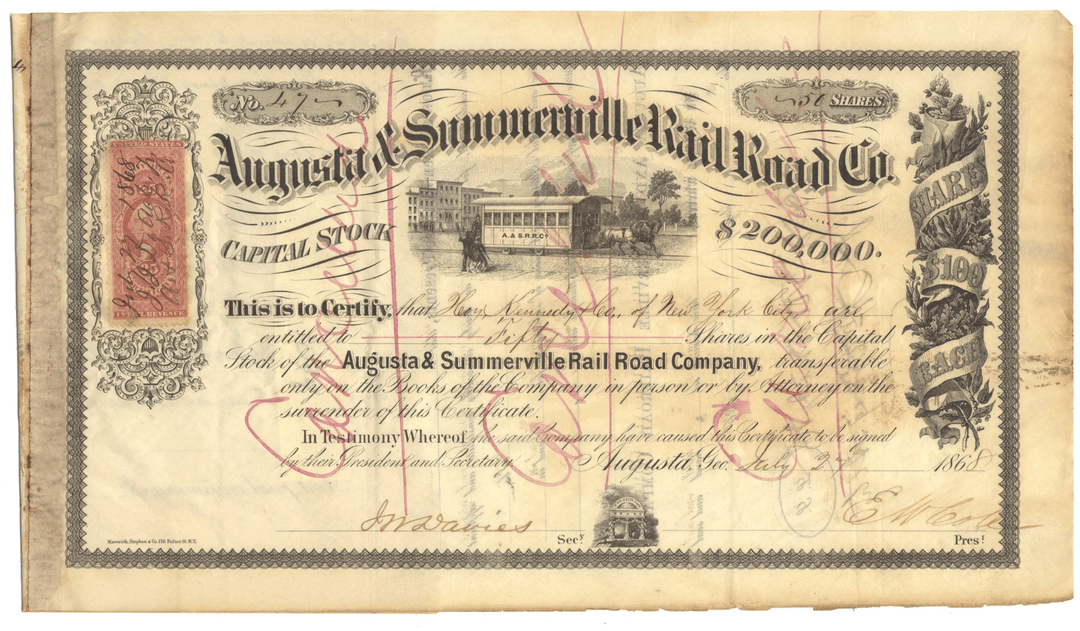 No. 47
50 SHARES.
Augusta & Summerville Rail Road Co.
A. & S.R.R.Co
CAPITAL STOCK
$200,000.
SHARES
$100
EACH
UNITED STATES
INTER. REVENUE
July 27 1868
This is to Certify, that Hoy, Kennedy & Co., of New York City are
entitled to Fifty Shares in the Capital
Stock of the Augusta & Summerville Rail Road Company, transferable
only on the Books of the Company in person or by Attorney on the
surrender of this Certificate.
In Testimony Whereof the said Company have caused this Certificate to be signed
by their President and Secretary. Augusta, Geo. July 27 1868
Jn Davies
Secy
E W Cole
Prest
Maverick, Stephan & Co. 156 Fulton St. N.Y.
Cancelled
Cancelled
Cancelled